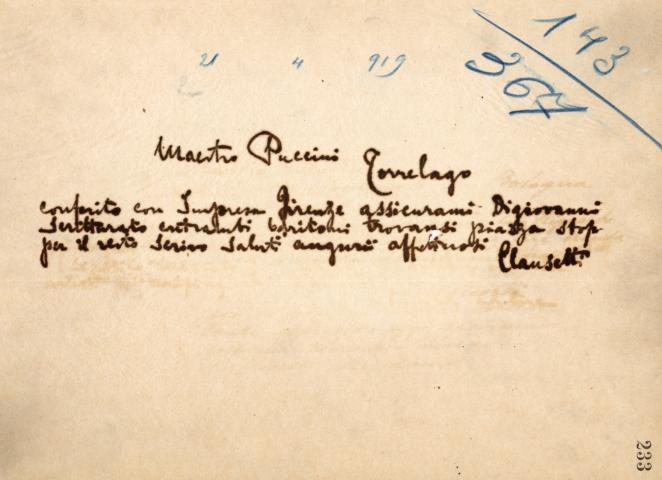 143
367
21 4 919
Maestro Puccini Torrelago
conferito con Impresa Firenze assicurami Digiovanni
entrambi baritoni trovansi piazza stop
per il resto scrivo saluti auguri affettuosi
Clausetti
233